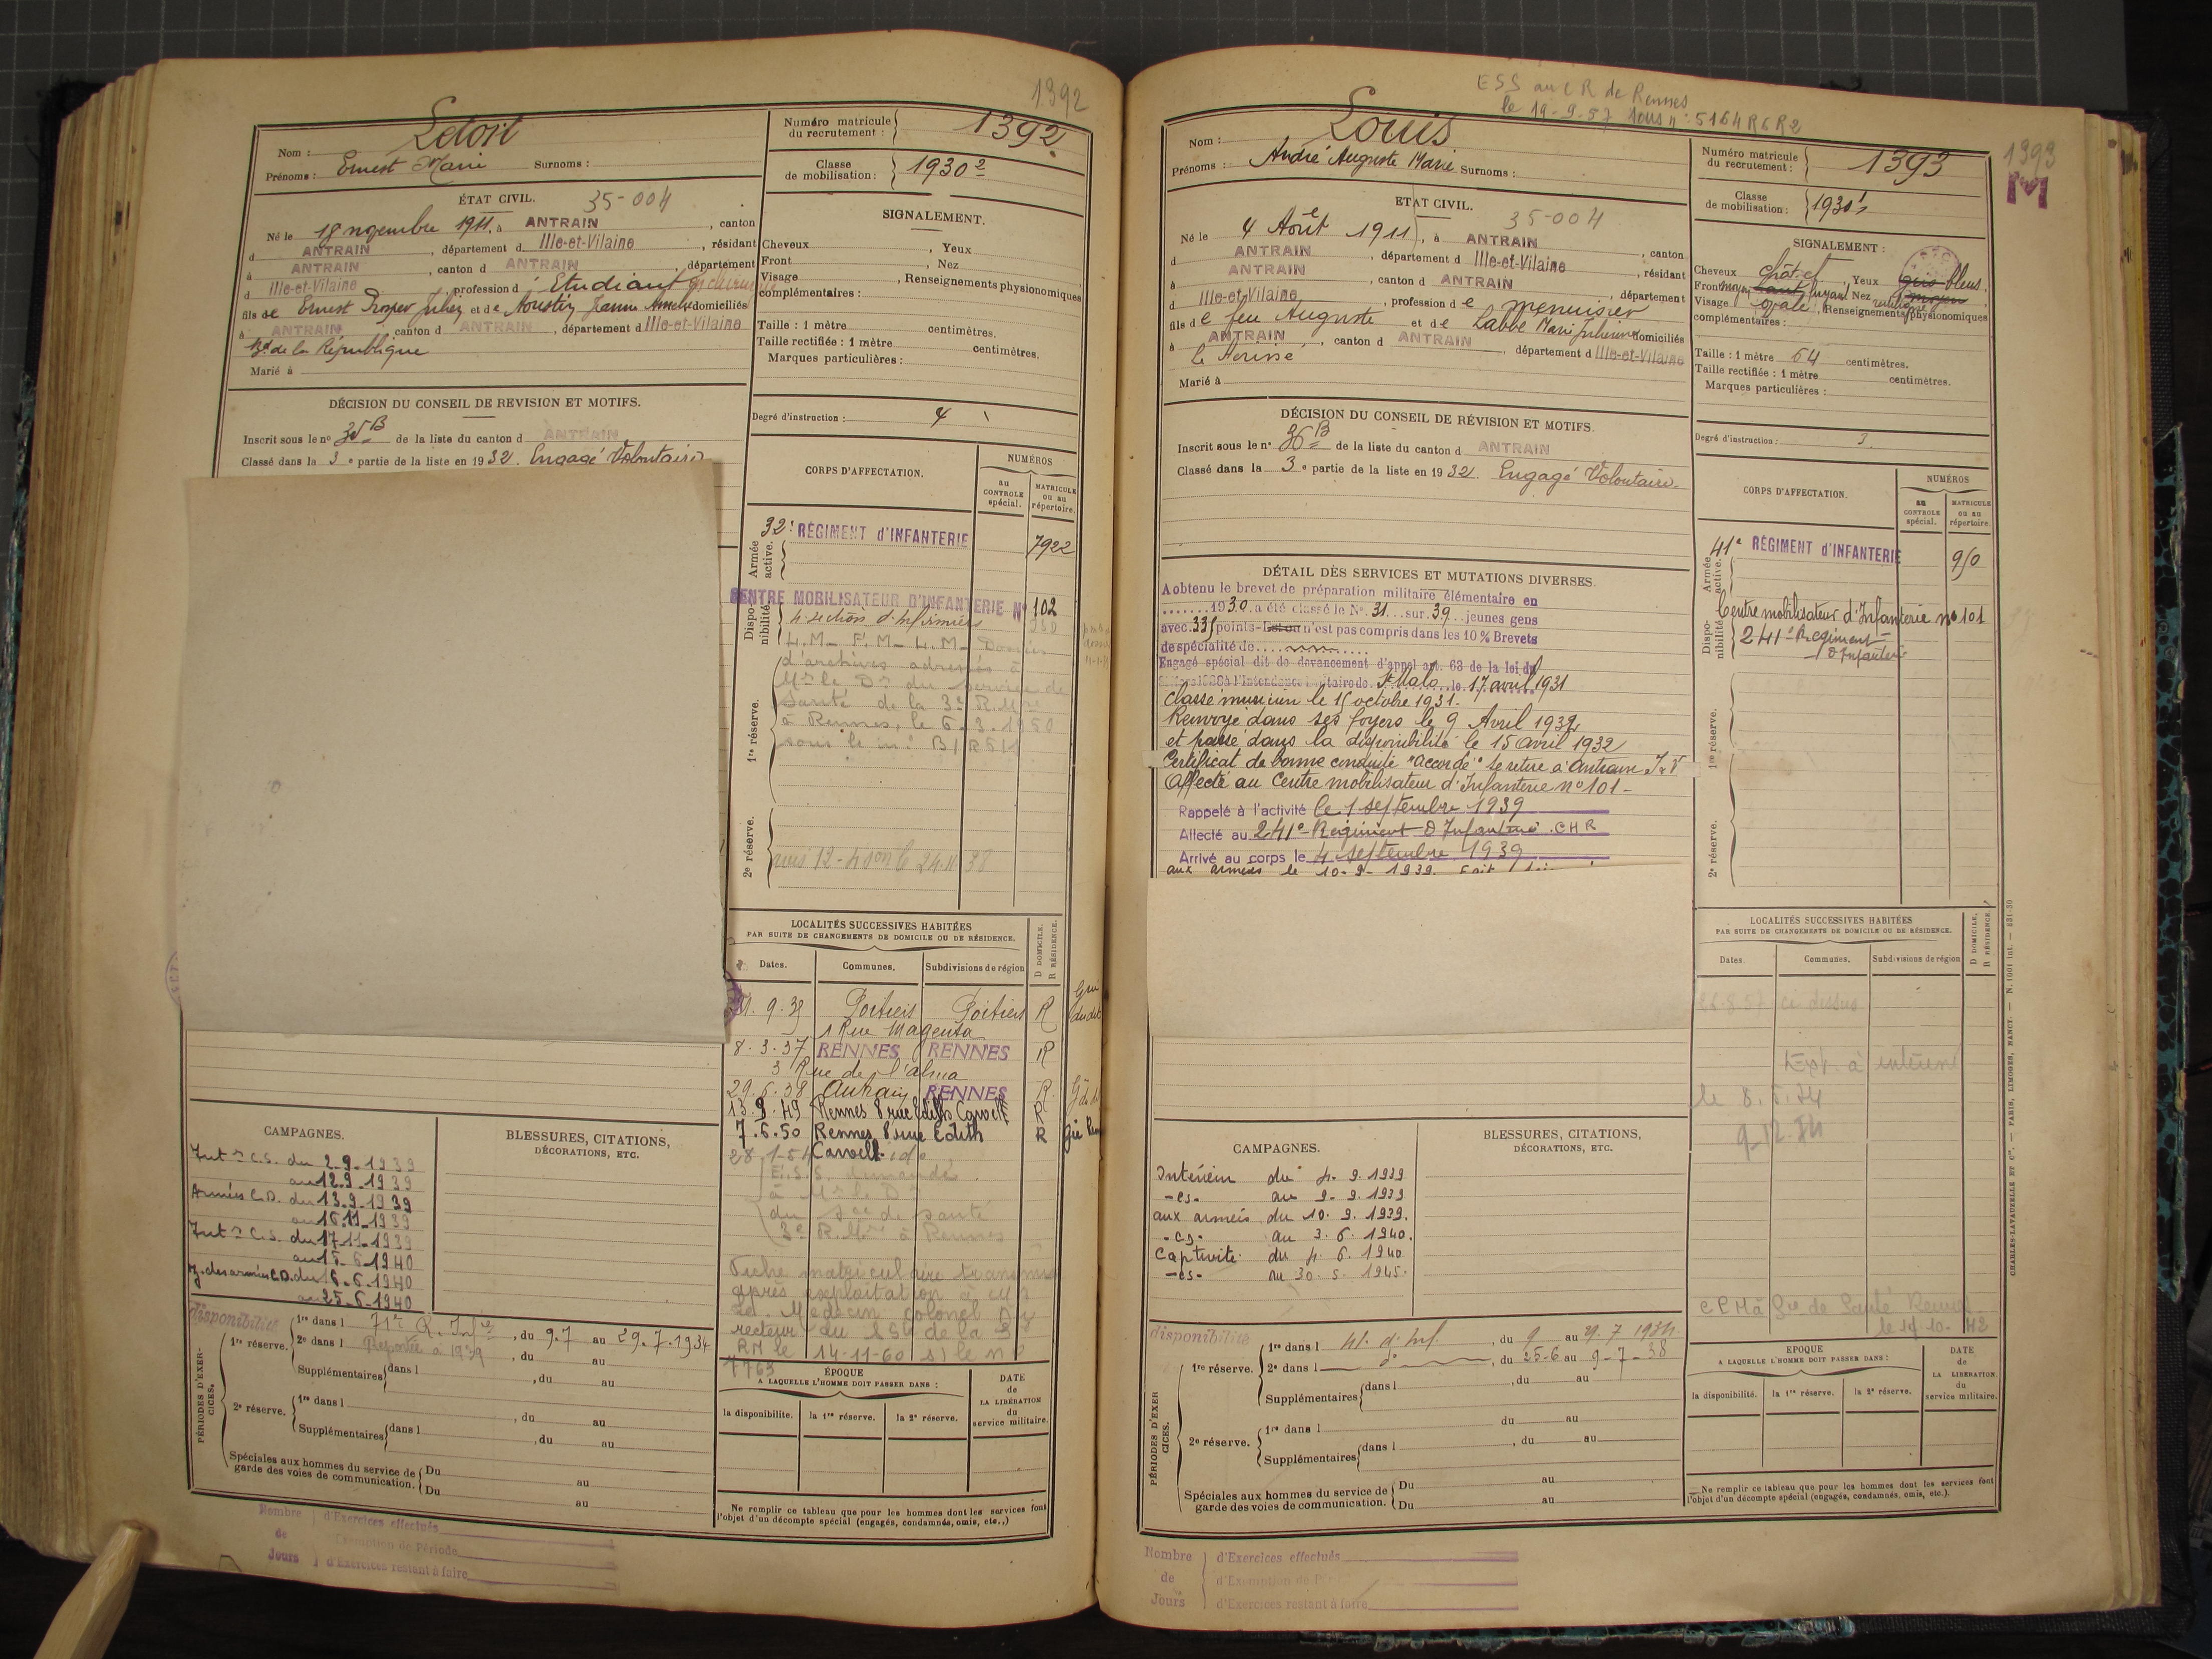 1392
Nom : Letort
Prénoms : Ernest Marie Surnoms :
Numéro matricule du recrutement : 1392
Classe de mobilisation : 1930 2
ÉTAT CIVIL. 35-004
Né le 18 novembre 1911, à ANTRAIN, canton
d ANTRAIN, département d Ille-et-Vilaine, résidant
à ANTRAIN, canton d ANTRAIN, département
d Ille-et-Vilaine, profession d Etudiant
fils de Ernest Prosper Julien et de Jeanne domiciliés
à ANTRAIN, canton d ANTRAIN, département d Ille-et-Vilaine
Bd de la République
Marié à
SIGNALEMENT.
Cheveux , Yeux
Front , Nez
Visage , Renseignements physionomiques
complémentaires :
Taille : 1 mètre centimètres.
Taille rectifiée : 1 mètre centimètres.
Marques particulières :
Degré d'instruction : 4
DÉCISION DU CONSEIL DE REVISION ET MOTIFS.
Inscrit sous le no 35 B de la liste du canton d ANTRAIN
Classé dans la 3 e partie de la liste en 1932. Engagé Volontaire
CORPS D'AFFECTATION.
NUMÉROS
au CONTROLE spécial.
MATRICULE ou au répertoire.
Armée active.
32e RÉGIMENT d'INFANTERIE 7922
Disponibilité
CENTRE MOBILISATEUR D'INFANTERIE No 102
4 section d'infirmiers
L.M- F.M- L.M- Dossier
d'archives adressé à
Mr le Dr du service de
Santé de la 3e R.Mre
à Rennes, le 6.3.1950
sous le no
1re réserve.
2e réserve.
LOCALITÉS SUCCESSIVES HABITÉES
PAR SUITE DE CHANGEMENTS DE DOMICILE OU DE RÉSIDENCE.
D DOMICILE. R RÉSIDENCE.
Dates. Communes. Subdivisions de région
Poitiers Poitiers R
1 Rue Magenta
8.3.37 RENNES RENNES R
3 Rue de l'alma
29.6.38 Antrain RENNES R
13.9.49 Rennes 8 rue Edith Cavell R
7.6.50 Rennes 8 rue Edith R
28.1.54 Cavell
E.S.S. demandé
à Mr le Dr
du Sce de santé
3e R.Mre à Rennes
Fiche matriculaire transmise
après exploitation à
Médecin Colonel Di
recteur du SSté de la 3
RM le 14-11-60 s) le no
7763
CAMPAGNES.
Intr C.S. du 2.9.1939
au 12.9.1939
Armées C.D. du 13.9.1939
au 16.11.1939
Intr C.S. du 17.11.1939
au 15.6.1940
Z. des armées C.D. du 16.6.1940
au 25.6.1940
BLESSURES, CITATIONS, DÉCORATIONS, ETC.
disponibilité
PÉRIODES D'EXERCICES.
1re réserve. 1re dans l 71e R. Infie, du 9.7 au 29.7.1934
2e dans l Reportée à 1939, du au
Supplémentaires dans l , du au
2e réserve. 1re dans l , du au
Supplémentaires dans l , du au
Spéciales aux hommes du service de garde des voies de communication. Du au
Du au
ÉPOQUE
A LAQUELLE L'HOMME DOIT PASSER DANS :
la disponibilité. la 1re réserve. la 2e réserve.
DATE de LA LIBÉRATION du service militaire.
Ne remplir ce tableau que pour les hommes dont les services font
l'objet d'un décompte spécial (engagés, condamnés, omis, etc.,)
Nombre de Jours
d'Exercices effectués
d'Exemption de Période
d'Exercices restant à faire
ESS au CR de Rennes
le 19-9-57 sous no 5164 R6R2
1393
M
Nom : Louis
Prénoms : André Auguste Marie Surnoms :
Numéro matricule du recrutement : 1393
Classe de mobilisation : 1930 1
ETAT CIVIL. 35-004
Né le 4 Août 1911, à ANTRAIN
d ANTRAIN, département d Ille-et-Vilaine, canton
à ANTRAIN, canton d ANTRAIN, résidant
d Ille-et-Vilaine, profession de menuisier, département
fils de feu Auguste et de Labbé Marie Julienne domiciliés
à ANTRAIN, canton d ANTRAIN, département d Ille-et-Vilaine
Marié à
SIGNALEMENT :
Cheveux chât. , Yeux gris bleus.
Front moyen haut fuyant Nez moyen rectiligne
Visage ovale , Renseignements physionomiques
complémentaires :
Taille : 1 mètre 64 centimètres.
Taille rectifiée : 1 mètre centimètres.
Marques particulières :
Degré d'instruction : 3.
DÉCISION DU CONSEIL DE RÉVISION ET MOTIFS.
Inscrit sous le no 36 B de la liste du canton d ANTRAIN
Classé dans la 3 e partie de la liste en 1932. Engagé Volontaire.
CORPS D'AFFECTATION.
NUMÉROS
au CONTROLE spécial.
MATRICULE ou au répertoire.
Armée active.
41e RÉGIMENT d'INFANTERIE
Disponibilité
Centre mobilisateur d'Infanterie no 101
241e Régiment
d'Infanterie
1re réserve.
2e réserve.
DÉTAIL DES SERVICES ET MUTATIONS DIVERSES.
A obtenu le brevet de préparation militaire élémentaire en
1930 a été classé le No. 31 sur 39 jeunes gens
avec 335 points-Est ou n'est pas compris dans les 10 % Brevets
de spécialité de
Engagé spécial dit de devancement d'appel art. 63 de la loi du
à l'Intendance militaire de St Malo le 17 avril 1931
Classé musicien le 15 octobre 1931.
Renvoyé dans ses foyers le 9 Avril 1932
et passé dans la disponibilité le 15 avril 1932
Certificat de bonne conduite "accordé" se retire à Antrain I.V
Affecté au Centre mobilisateur d'Infanterie no 101-
Rappelé à l'activité le 1 septembre 1939
Affecté au 241e Régiment d'Infanterie. CHR
Arrivé au corps le 4 septembre 1939
aux armées le 10-9-1939.
LOCALITÉS SUCCESSIVES HABITÉES
PAR SUITE DE CHANGEMENTS DE DOMICILE OU DE RÉSIDENCE.
D DOMICILE. R RÉSIDENCE.
Dates. Communes. Subdivisions de région
26.8.57 ci dessus
le 8.5.74
CAMPAGNES.
Intérieur du 4.9.1939
-cs- au 9.9.1939
aux armées du 10.9.1939.
-cs- au 3.6.1940.
Captivité du 4.6.1940
-cs- au 30.5.1945.
BLESSURES, CITATIONS, DÉCORATIONS, ETC.
disponibilité
PÉRIODES D'EXERCICES.
1re réserve. 1re dans l 41. d'Inf., du 9 au 29.7 1934
2e dans l do, du 25-6 au 9-7-38
Supplémentaires dans l , du au
2e réserve. 1re dans l du au
Supplémentaires dans l , du au
Spéciales aux hommes du service de garde des voies de communication. Du au
Du au
EPOQUE
A LAQUELLE L'HOMME DOIT PASSER DANS :
la disponibilité. la 1re réserve. la 2e réserve.
DATE de LA LIBÉRATION du service militaire.
Ne remplir ce tableau que pour les hommes dont les services font
l'objet d'un décompte spécial (engagés, condamnés, omis, etc.).
CHARLES-LAVAUZELLE ET Cie. — PARIS, LIMOGES, NANCY. — N. 1001 int. — 831-30
Nombre de Jours
d'Exercices effectués
d'Exemption de
d'Exercices restant à faire